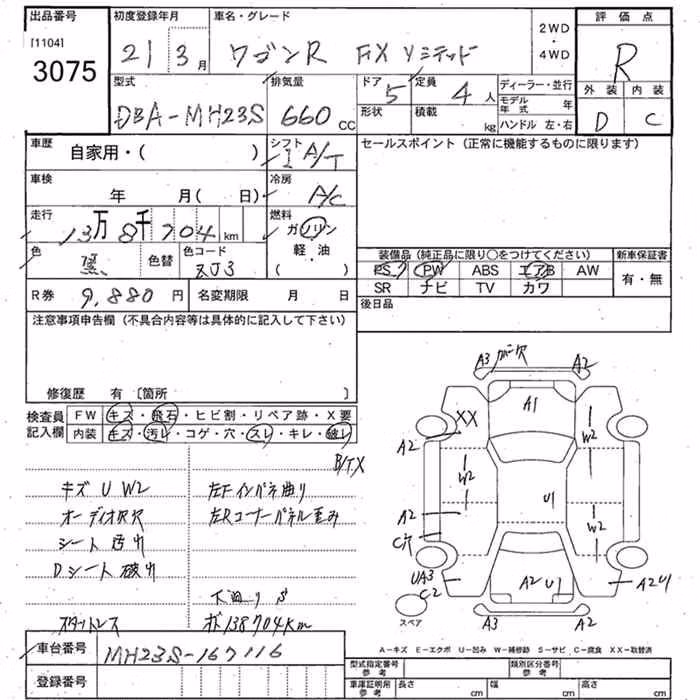 出品番号
[1104]
3075
初度登録年月
21 3月
車名・グレード
ワゴンR FX リミテッド
2WD
・
4WD
評価点
R
外装 内装
D C
型式
DBA-MH23S
排気量
660 CC
ドア
5
定員
4 人
形状
積載
kg
ディーラー・並行
モデル年式 年
ハンドル 左・右
車歴
自家用・( )
シフト
I A/T
車検
年 月( 日)
冷房
A/C
走行
13万8千704 km
燃料
ガソリン
軽・油
( )
色
黒
色替
色コード
ZJ3
R券 9,880 円
名変期限 月 日
セールスポイント(正常に機能するものに限ります)
装備品(純正品に限り○をつけてください)
新車保証書
PS PW ABS エアB AW
SR ナビ TV カワ
有・無
後日品
注意事項申告欄(不具合内容等は具体的に記入して下さい)
修復歴 有〔箇所 〕
検査員
記入欄
FW キズ・飛石・ヒビ割・リペア跡・X要
内装 キズ・汚レ・コゲ・穴・スレ・キレ・破レ
B/TX
キズ U W2
オーディオ穴
シート 汚れ
Dシート 破れ
スタットレス
左Fインパネ曲り
左Rコーナーパネル歪み
下回り S
メ 138704km
A3 バー穴 A2
A1
XX
A2
W2
W2
A2
U1
W2
C穴
UA3
C2
A2 U1
A2 U1
スペア
A3
A2
A-キズ E-エクボ U-凹み W-補修跡 S-サビ C-腐食 XX-取替済
車台番号
MH23S-167116
登録番号
型式指定番号
参考
類別区分番号
参考
車庫証明用
参考
長さ cm
幅 cm
高さ cm